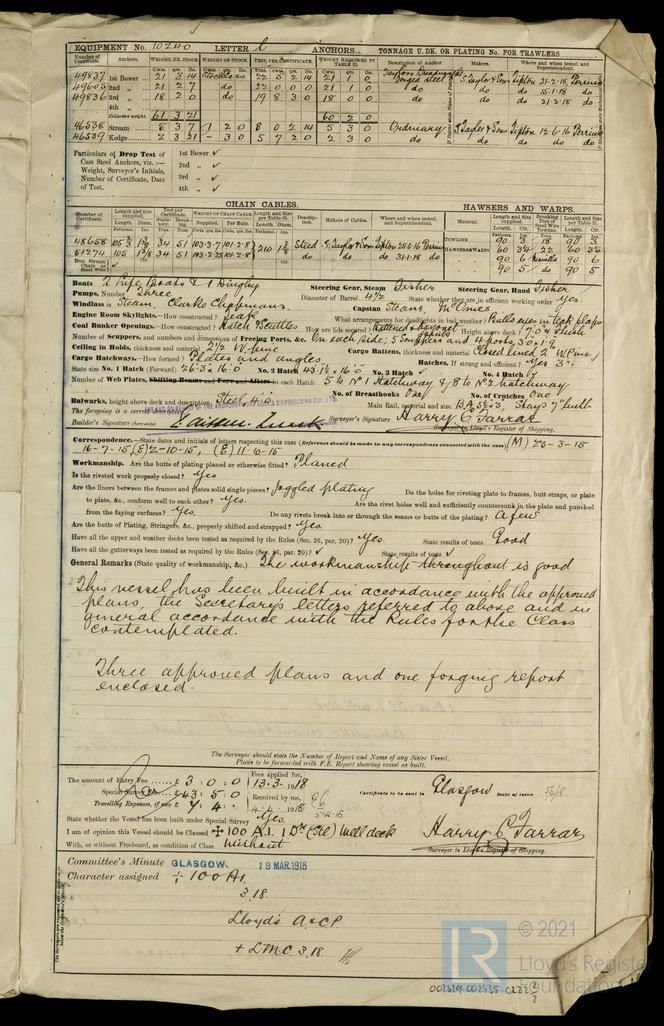 EQUIPMENT No. 10240 LETTER ANCHORS. TONNAGE U. DK. OR PLATING No. FOR TRAWLERS
Number of Certificate. Anchors. WEIGHT, EX. STOCK WEIGHT OF STOCK. TEST, PER CERTIFICATE. WEIGHT REQUIRED BY TABLE 31. Description of Anchor Makers Where and when tested and Superintendent.
49837 1st Bower 21 3 14 Stockless 22 5 2 14 21 1 0 S. Taylor & Sons Tipton 21-2-18 Perrins
49603 2nd „ 21 2 7 do 22 0 0 0 21 1 0 do do do 15-1-18 do
49836 3rd „ 18 2 0 do 19 8 3 0 18 0 0 do do do 21-2-18 do
4th „
Collective weight 61 3 21 60 2 0
46538 Stream 5 3 7 1 2 0 8 0 2 14 5 3 0 Ordinary S. Taylor & Sons Tipton 12-6-16 Perrins
46539 Kedge 2 3 21 - 3 0 5 7 2 0 2 3 0 do do do do
Particulars of Drop Test of 1st Bower ✓
Cast Steel Anchors, viz.:— 2nd „ ✓
Weight, Surveyor's Initials,
Number of Certificate, Date 3rd „ ✓
of Test. 4th „ ✓
CHAIN CABLES. HAWSERS AND WARPS.
Number of Certificate. Length and size supplied. Test per Certificate WEIGHT OF CHAIN CABLE. Length and Size per Table 31. Description. Makers of Cables. Where and when tested, and Superintendent. Material Length and Size supplied. Breaking Test of Steel Wire Towline Length and Size per Table 31.
48658 105 34 51 103-3-7 101-2-8 210 Steel S. Taylor & Sons Tipton 25-5-16 Perrins TOWLINE 90 3 18 90 3
51274 105 34 51 103-2-25 101-2-8 do do do 31-1-18 do HAWSERS & WARPS 60 22 60
„ 90 6 Manilla 90 6
„ 90 5 do 90 5
Boats 2 Life Boats & 1 Dinghy Steering Gear, Steam Fisher Steering Gear, Hand Fisher
Pumps, Number Three Diameter of Barrel 4½ State whether they are in efficient working order yes.
Windlass is Steam, Clarke Chapmans. Capstan Steam
Engine Room Skylights.—How constructed? Teak What arrangements for deadlights in bad weather? Bulls eyes in teak flaps
Coal Bunker Openings.—How constructed? Hatch & Scuttles How are lids secured? Height above deck?
Number of Scuppers, and numbers and dimensions of Freeing Ports, &c. On each side; 5 scuppers and 4 ports,
Ceiling in Holds, thickness and material 2½ W. Pine Cargo Battens, thickness and material 2" W. Pine
Cargo Hatchways.—How formed? Plates and angles Hatches, If strong and efficient? Yes 3"
State size No. 1 Hatch (Forward) 26.3 x 16.0 No. 2 Hatch 43.1½ x 16.0 No. 3 Hatch ✓ No. 4 Hatch ✓
Number of Web Plates, Shifting Beams and Fore and Afters to each Hatch 5 to No 1 Hatchway & 8 to No 2 hatchway
No. of Breasthooks No. of Crutches One
Bulwarks, height above deck and description Steel 4.0 Main Rail, material and size Stays
The foregoing is a correct description,
Builder's Signature (here only) Surveyor's Signature Harry C. Farrar
Surveyor to Lloyd's Register of Shipping.
Correspondence.—State dates and initials of letters respecting this case (Reference should be made in any correspondence connected with the case) (M) 23-3-15
16-7-15, (E) 2-10-15, (E) 11-10-15
Workmanship. Are the butts of plating planed or otherwise fitted? Planed
Is the riveted work properly closed? Yes
Are the liners between the frames and plates solid single pieces? Joggled plating Do the holes for riveting plate to frames, butt straps, or plate
to plate, &c., conform well to each other? Yes. Are the rivet holes well and sufficiently countersunk in the plate and punched
from the faying surfaces? Yes. Do any rivets break into or through the seams or butts of the plating? a few
Are the butts of Plating, Stringers, &c., properly shifted and strapped? Yes
Have all the upper and weather decks been tested as required by the Rules (Sec. 26, par. 20)? Yes. State results of tests Good
Have all the gutterways been tested as required by the Rules (Sec. 26, par. 20)? ✓ State results of tests ✓
General Remarks (State quality of workmanship, &c.) The workmanship throughout is good
This vessel has been built in accordance with the approved
plans, the Secretary's letters referred to above and in
general accordance with the Rules for the Class
contemplated.
Three approved plans and one forging report
enclosed.
The Surveyor should state the Number of Report and Name of any Sister Vessel.
Plans to be forwarded with F.E. Report showing vessel as built.
The amount of Entry Fee £ 3 : 0 : 0 Fees applied for, 13-3-1918 Certificate to be sent to Glasgow Date of issue
Special £ 43 : 5 : 0 Received by me,
Travelling Expenses, if any £ 7 : 4 : 4-4-1918
State whether the Vessel has been built under Special Survey Yes.
I am of opinion this Vessel should be Classed + 100 A.1. 1 Dk (Stl) Well deck Harry C. Farrar
With, or without Freeboard, as condition of Class Without Surveyor to Lloyd's Register of Shipping.
Committee's Minute GLASGOW. 19 MAR. 1918
Character assigned + 100 A1
3.18
Lloyd's A&CP
+ LMC 3.18
© 2021
Lloyd's Register
Foundation